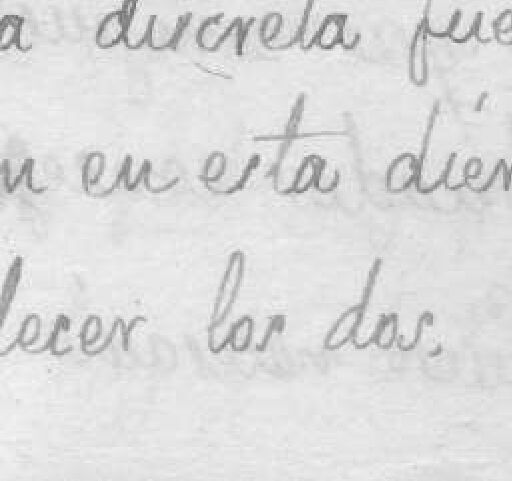 a discreta fue
n en esta dier
lecer los dos.